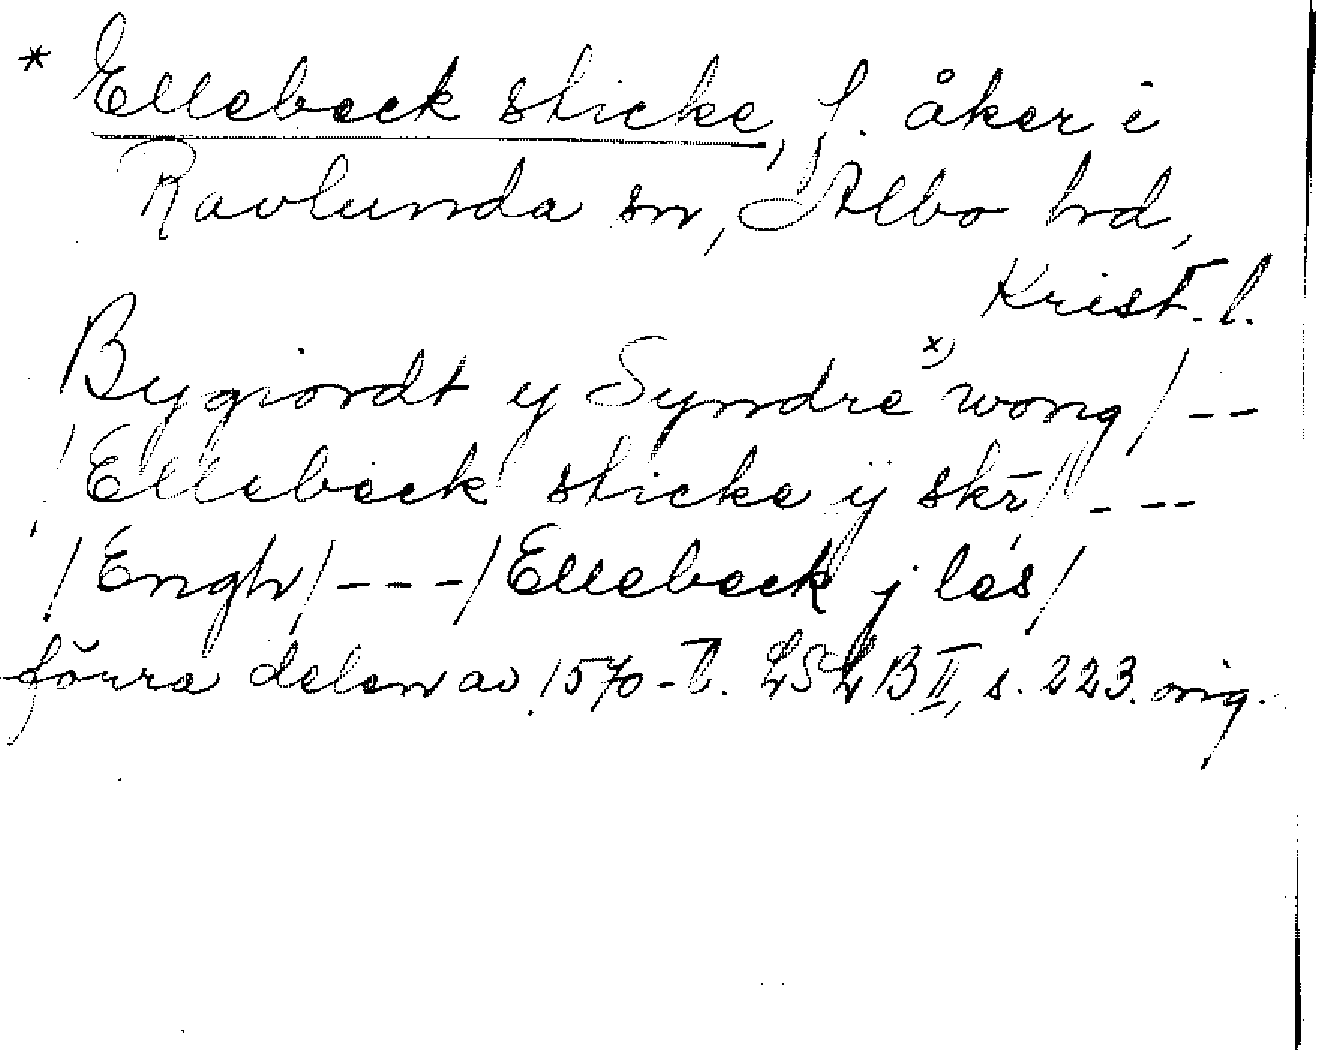 * Ellebeck sticke, f. åker i
Ravlunda sn, Albo hd,
Krist. l.
Bygiordt y Syndre x) wong/--
/Ellebeck sticke ij skr/ ---
/Engh/---/Ellebeck j les/
förra delen av 1570-t. LSLB II, s. 223. orig.